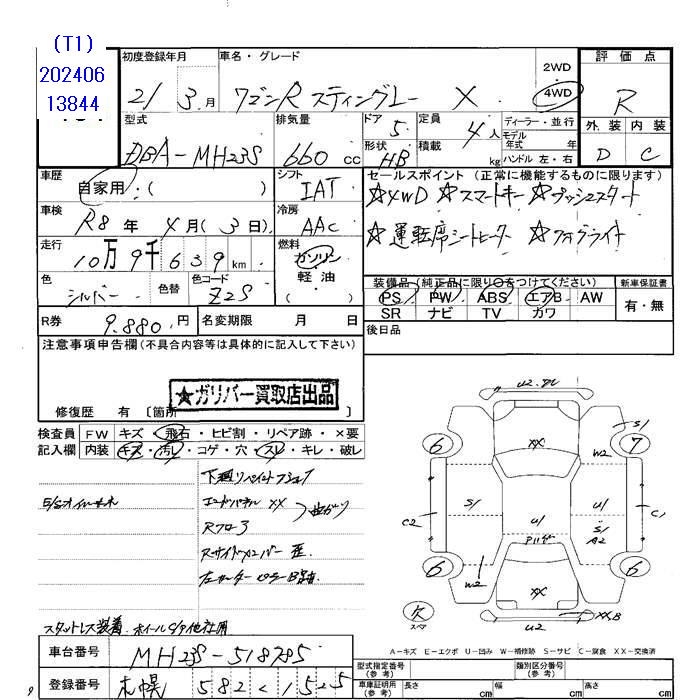 (T1)
202406
13844
初度登録年月
21 3 月
車名・グレード
ワゴンR スティングレー X
2WD
4WD
評価点
R
外装 内装
D C
型式
DBA-MH23S
排気量
660 cc
ドア 5
形状 HB
定員 4 人
積載 kg
ディーラー・並行
モデル年式 年
ハンドル 左・右
車歴
自家用:( )
シフト
IAT
セールスポイント (正常に機能するものに限ります)
☆4WD ☆スマートキー ☆プッシュスタート
☆運転席シートヒーター ☆フォグライト
車検
R8 年 4 月 ( 3 日)
冷房
AAC
走行
10万9千639 km
燃料
ガソリン
軽油
( )
色
シルバー
色替
色コード
Z2S
装備品 (純正品に限り〇をつけてください)
PS PW ABS エアB AW
SR ナビ TV カワ
新車保証書
有・無
R券 9,880 円
名変期限 月 日
後日品
注意事項申告欄(不具合内容等は具体的に記入して下さい)
★ガリバー買取店出品
修復歴 有 〔箇所
検査員
記入欄
FW キズ・飛石・ヒビ割・リペア跡・×要
内装 キズ・汚レ・コゲ・穴・スレ・キレ・破レ
エンドパネル XX
曲がり
Rフロア
スタットレス装着
車台番号 MH23S-518785
登録番号 札幌 582 く 1525
U2
XX
6
7
S1
W2
S1
U1
U1
S1
A2
C2
C1
6
6
W2
XX
XXB
U2
欠
スペア
A-キズ E-エクボ U-凹み W-補修跡 S-サビ C-腐食 XX-交換済
型式指定番号
(参考)
類別区分番号
(参考)
車庫証明用
(参考)
長さ cm
幅 cm
高さ cm